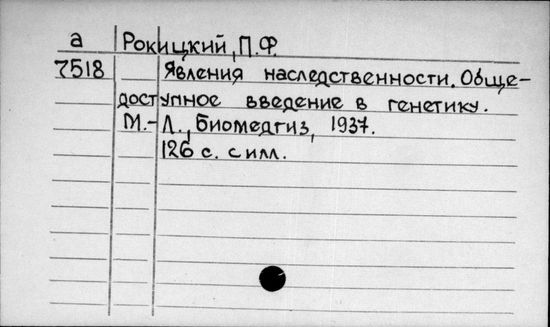 а Рокицкий, П.Ф.
7518 Явления наследственности. Обще-
доступное введение в генетику.
М.-Л., Биомедгиз, 1937.
126 с. с илл.